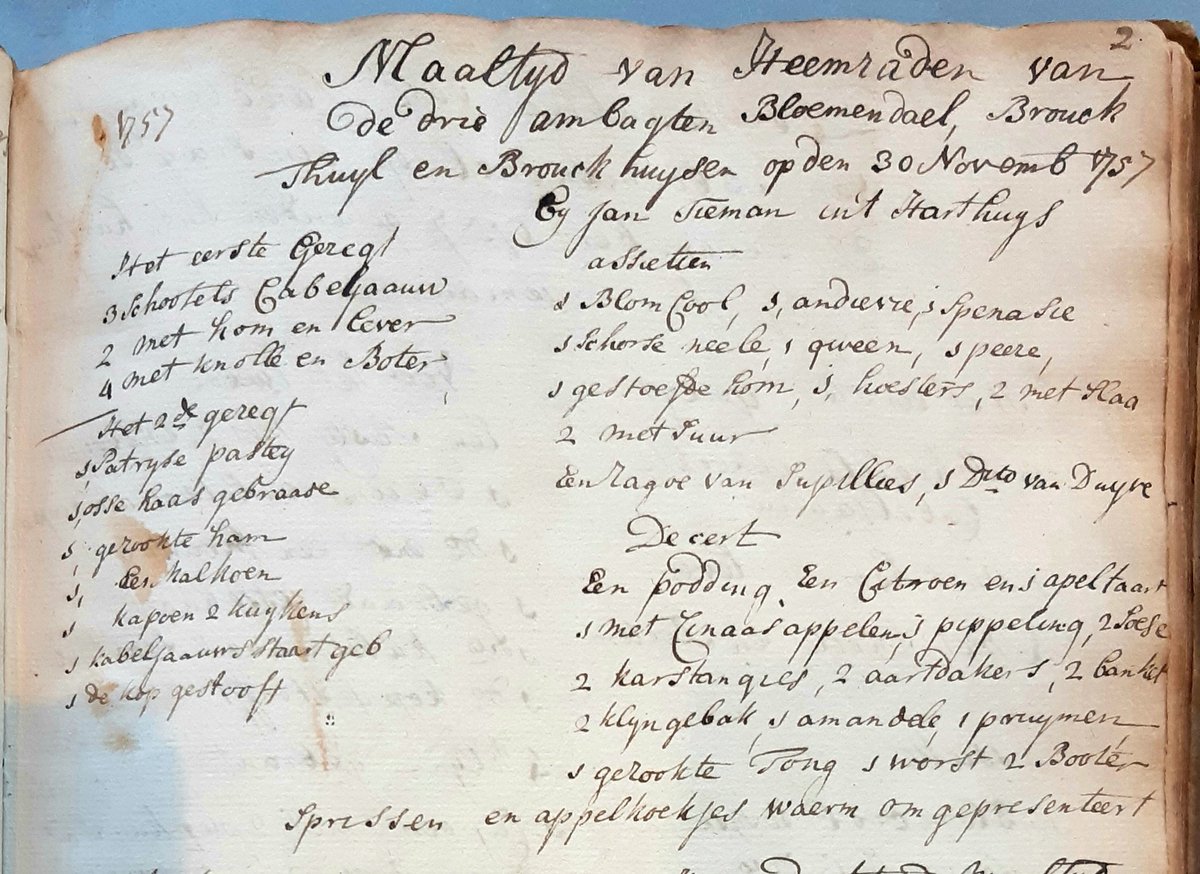 2
Maaltyd van Heemraden van
de drie ambagten Bloemendael, Brouck
1757
Thuyl en Brouckhuysen op den 30 Novemb 1757
by Jan Tieman int Harthuys
Het eerste Geregt
3 Schootels Cabeljaauw
2 met hom en lever
4 met knolle en Boter
Het 2de geregt
1 Patryse pastey
1, osse haas gebraade
1, gerookte ham
1, Een kalkoen
1 kapoen 2 kuykens
1 kabeljaauws staart geb
1 de kop gestooft
assietten
1 Blom Cool, 1, andievie, 1 Spenasie
1 Schorse neele, 1 qween, 1 peere,
1 gestoefde hom, 1, hoesters, 2 met Slaa
2 met Suur
Een ragoe van Supillies, 1 Dito van Duyve
Decert
Een podding, Een Citroen en 1 apeltaart
1 met Cinaas appelen, 1 pippeling, 2 Soese
2 karstangies, 2 aartdakers, 2 banket
2 klyn gebak, 1 amandele, 1 pruymen
1 gerookte Tong 1 worst 2 Booter
Sprissen en appelkoekjes waerm om gepresenteert